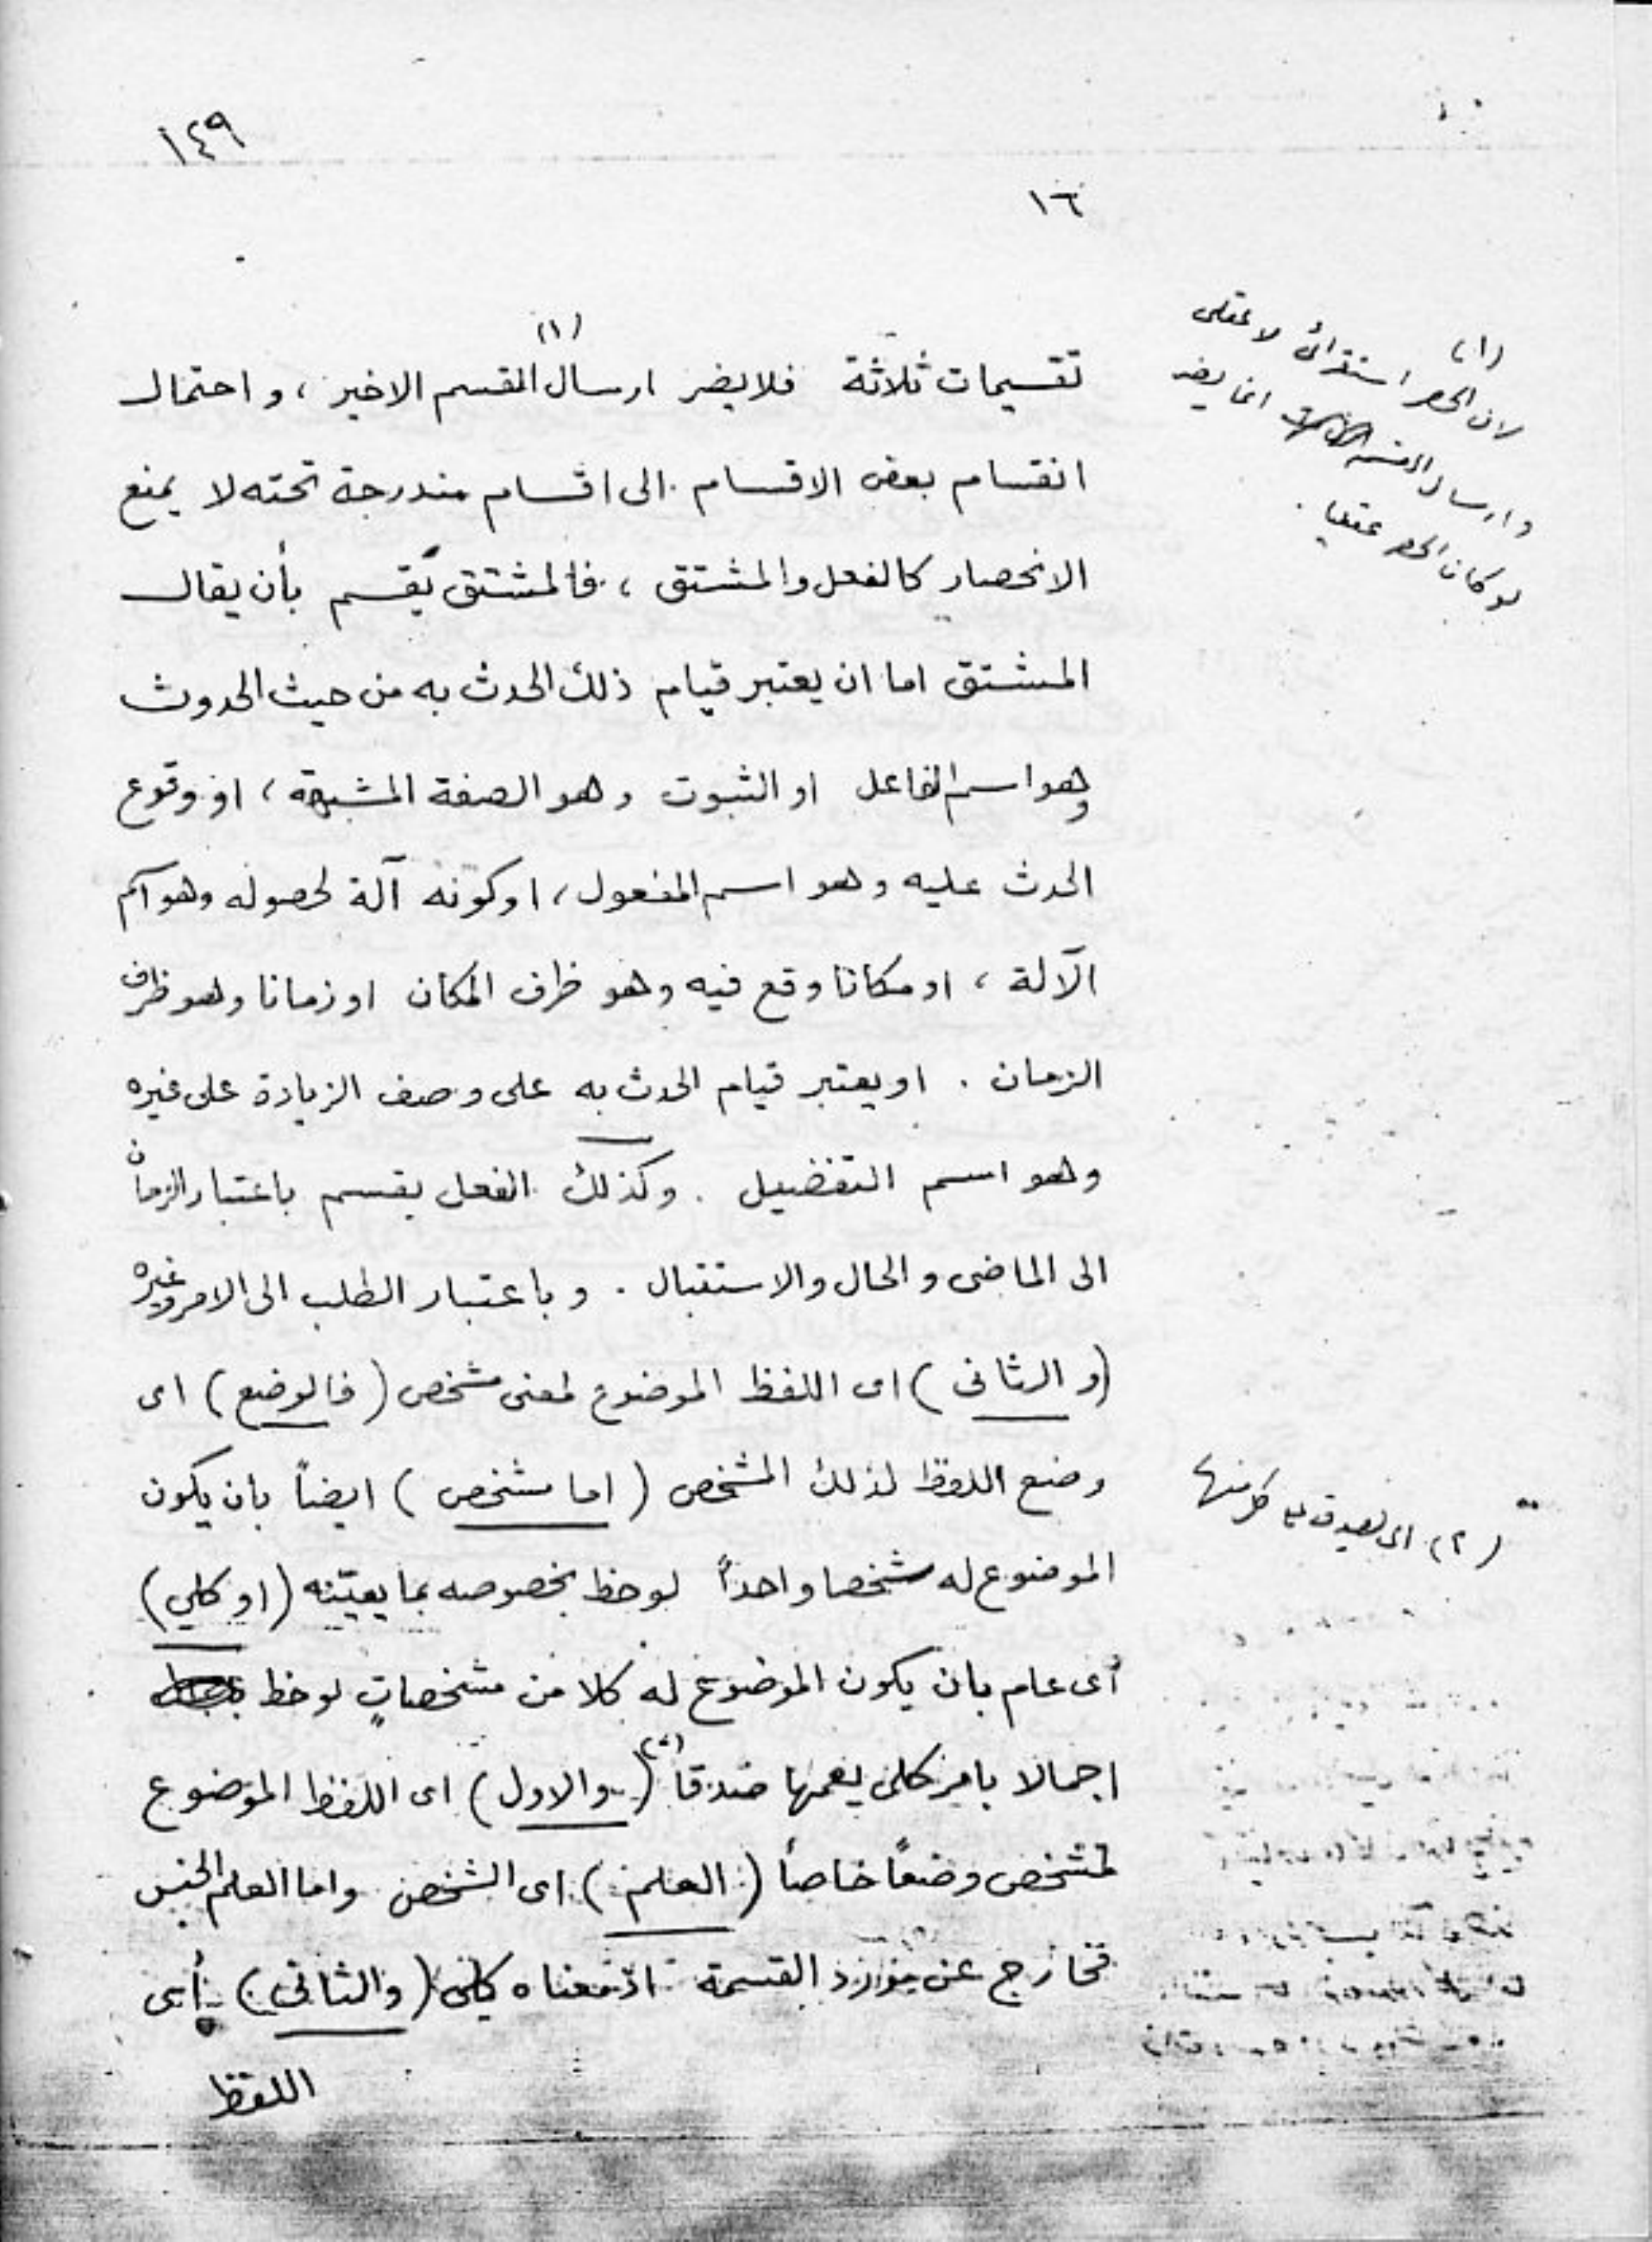 ١٤٩
١٦
(١)
تقسيمات ثلاثة فلا يضر ارسال القسم الاخير ، و احتمال
انقسام بعض الاقسام الى اقسام مندرجة تحته لا يمنع
الانحصار كالفعل والمشتق ، فالمشتق يُقسم بأن يقال
المشتق اما ان يعتبر قيام ذلك الحدث به من حيث الحدوث
وهو اسم الفاعل او الثبوت وهو الصفة المشبهة ، او وقوع
الحدث عليه وهو اسم المفعول ، او كونه آلة لحصوله وهو اسم
الآلة ، او مكانا وقع فيه وهو ظرف المكان او زمانا وهو ظرف
الزمان . او يعتبر قيام الحدث به على وصف الزيادة على غيره
وهو اسم التفضيل . وكذلك الفعل يقسم باعتبار الزمان
الى الماضى و الحال والاستقبال . و باعتبار الطلب الى الامر وغيره
(و الثانى) اى اللفظ الموضوع لمعنى مشخص (فالوضع) اى
وضع اللفظ لذلك المشخص (اما مشخص) ايضاً بان يكون
الموضوع له شخصا واحداً لوحظ بخصوصه بما يعيّنه (او كلي)
أى عام بان يكون الموضوع له كلا من مشخصاتٍ لوحظ
اجمالا بامر كلى يعمها صدقا (٢) (والاول) اى اللفظ الموضوع
لمشخص وضعاً خاصاً (العلم) اى الشخص واما العلم الجنس
فخارج عن موارد القسمة اذ معناه كلى (والثانى) أى
اللفظ
(١)
لان الحصر استقرائى لا عقلى
وارسال القسم انما يضر
لو كان الحصر عقليا .
(٢) اى يصدق كل منها